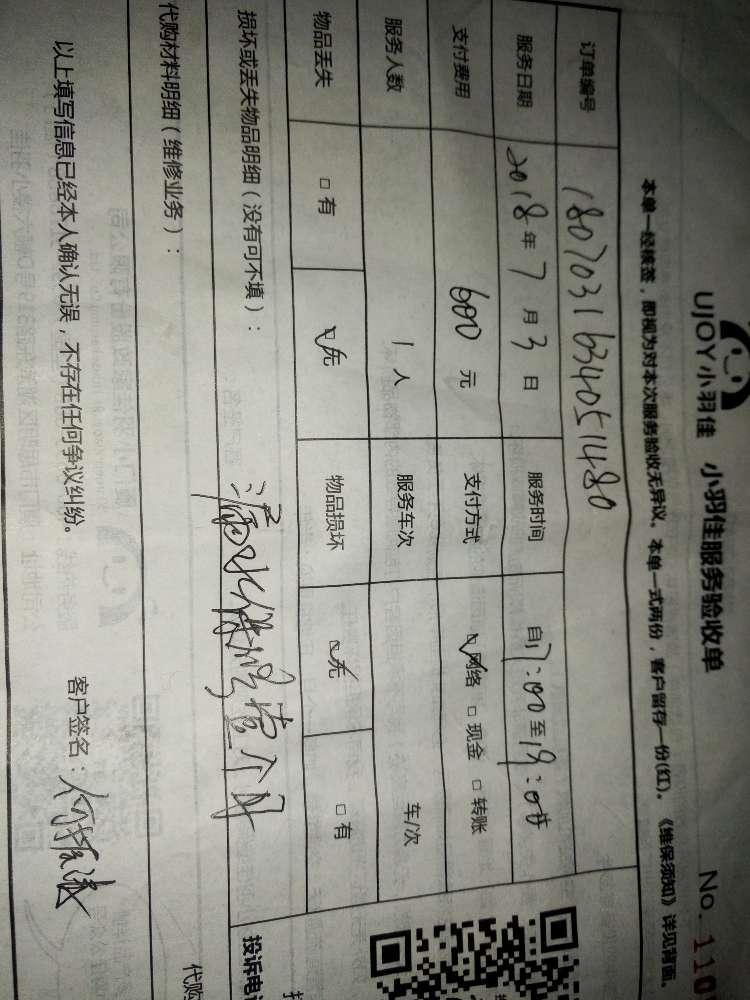 UJOY小羽佳 小羽佳服务验收单 No.110
本单一经核签，即视为对本次服务验收无异议。本单一式两份，客户留存一份(红)。《维保须知》详见背面。
订单编号 1807031634051480
服务日期 2018年7月3日 服务时间 自17:00至19:00
支付费用 600元 支付方式 ☑网络 □现金 □转账
服务人数 1人 服务车次 车/次
物品丢失 □有 ☑无 物品损坏 ☑无 □有
损坏或丢失物品明细（没有可不填）：
漏水保修壹个月
投诉电
代购材料明细（维修业务）：
代购
以上填写信息已经本人确认无误，不存在任何争议纠纷。 客户签名：